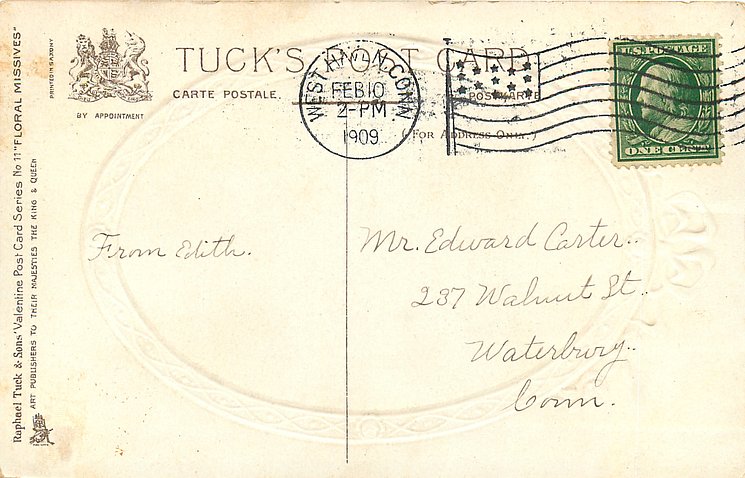 Raphael Tuck & Sons' Valentine Post Card Series No 11 "FLORAL MISSIVES"
ART PUBLISHERS TO THEIR MAJESTIES THE KING & QUEEN
PRINTED IN SAXONY
BY APPOINTMENT
TUCK'S POST CARD
CARTE POSTALE.
POSTKARTE
(FOR ADDRESS ONLY.)
WEST HAVEN, CONN
FEB 10
2-PM
1909
U.S. POSTAGE
ONE CENT
From Edith.
Mr. Edward Carter.
237 Walnut St.
Waterbury.
Conn.